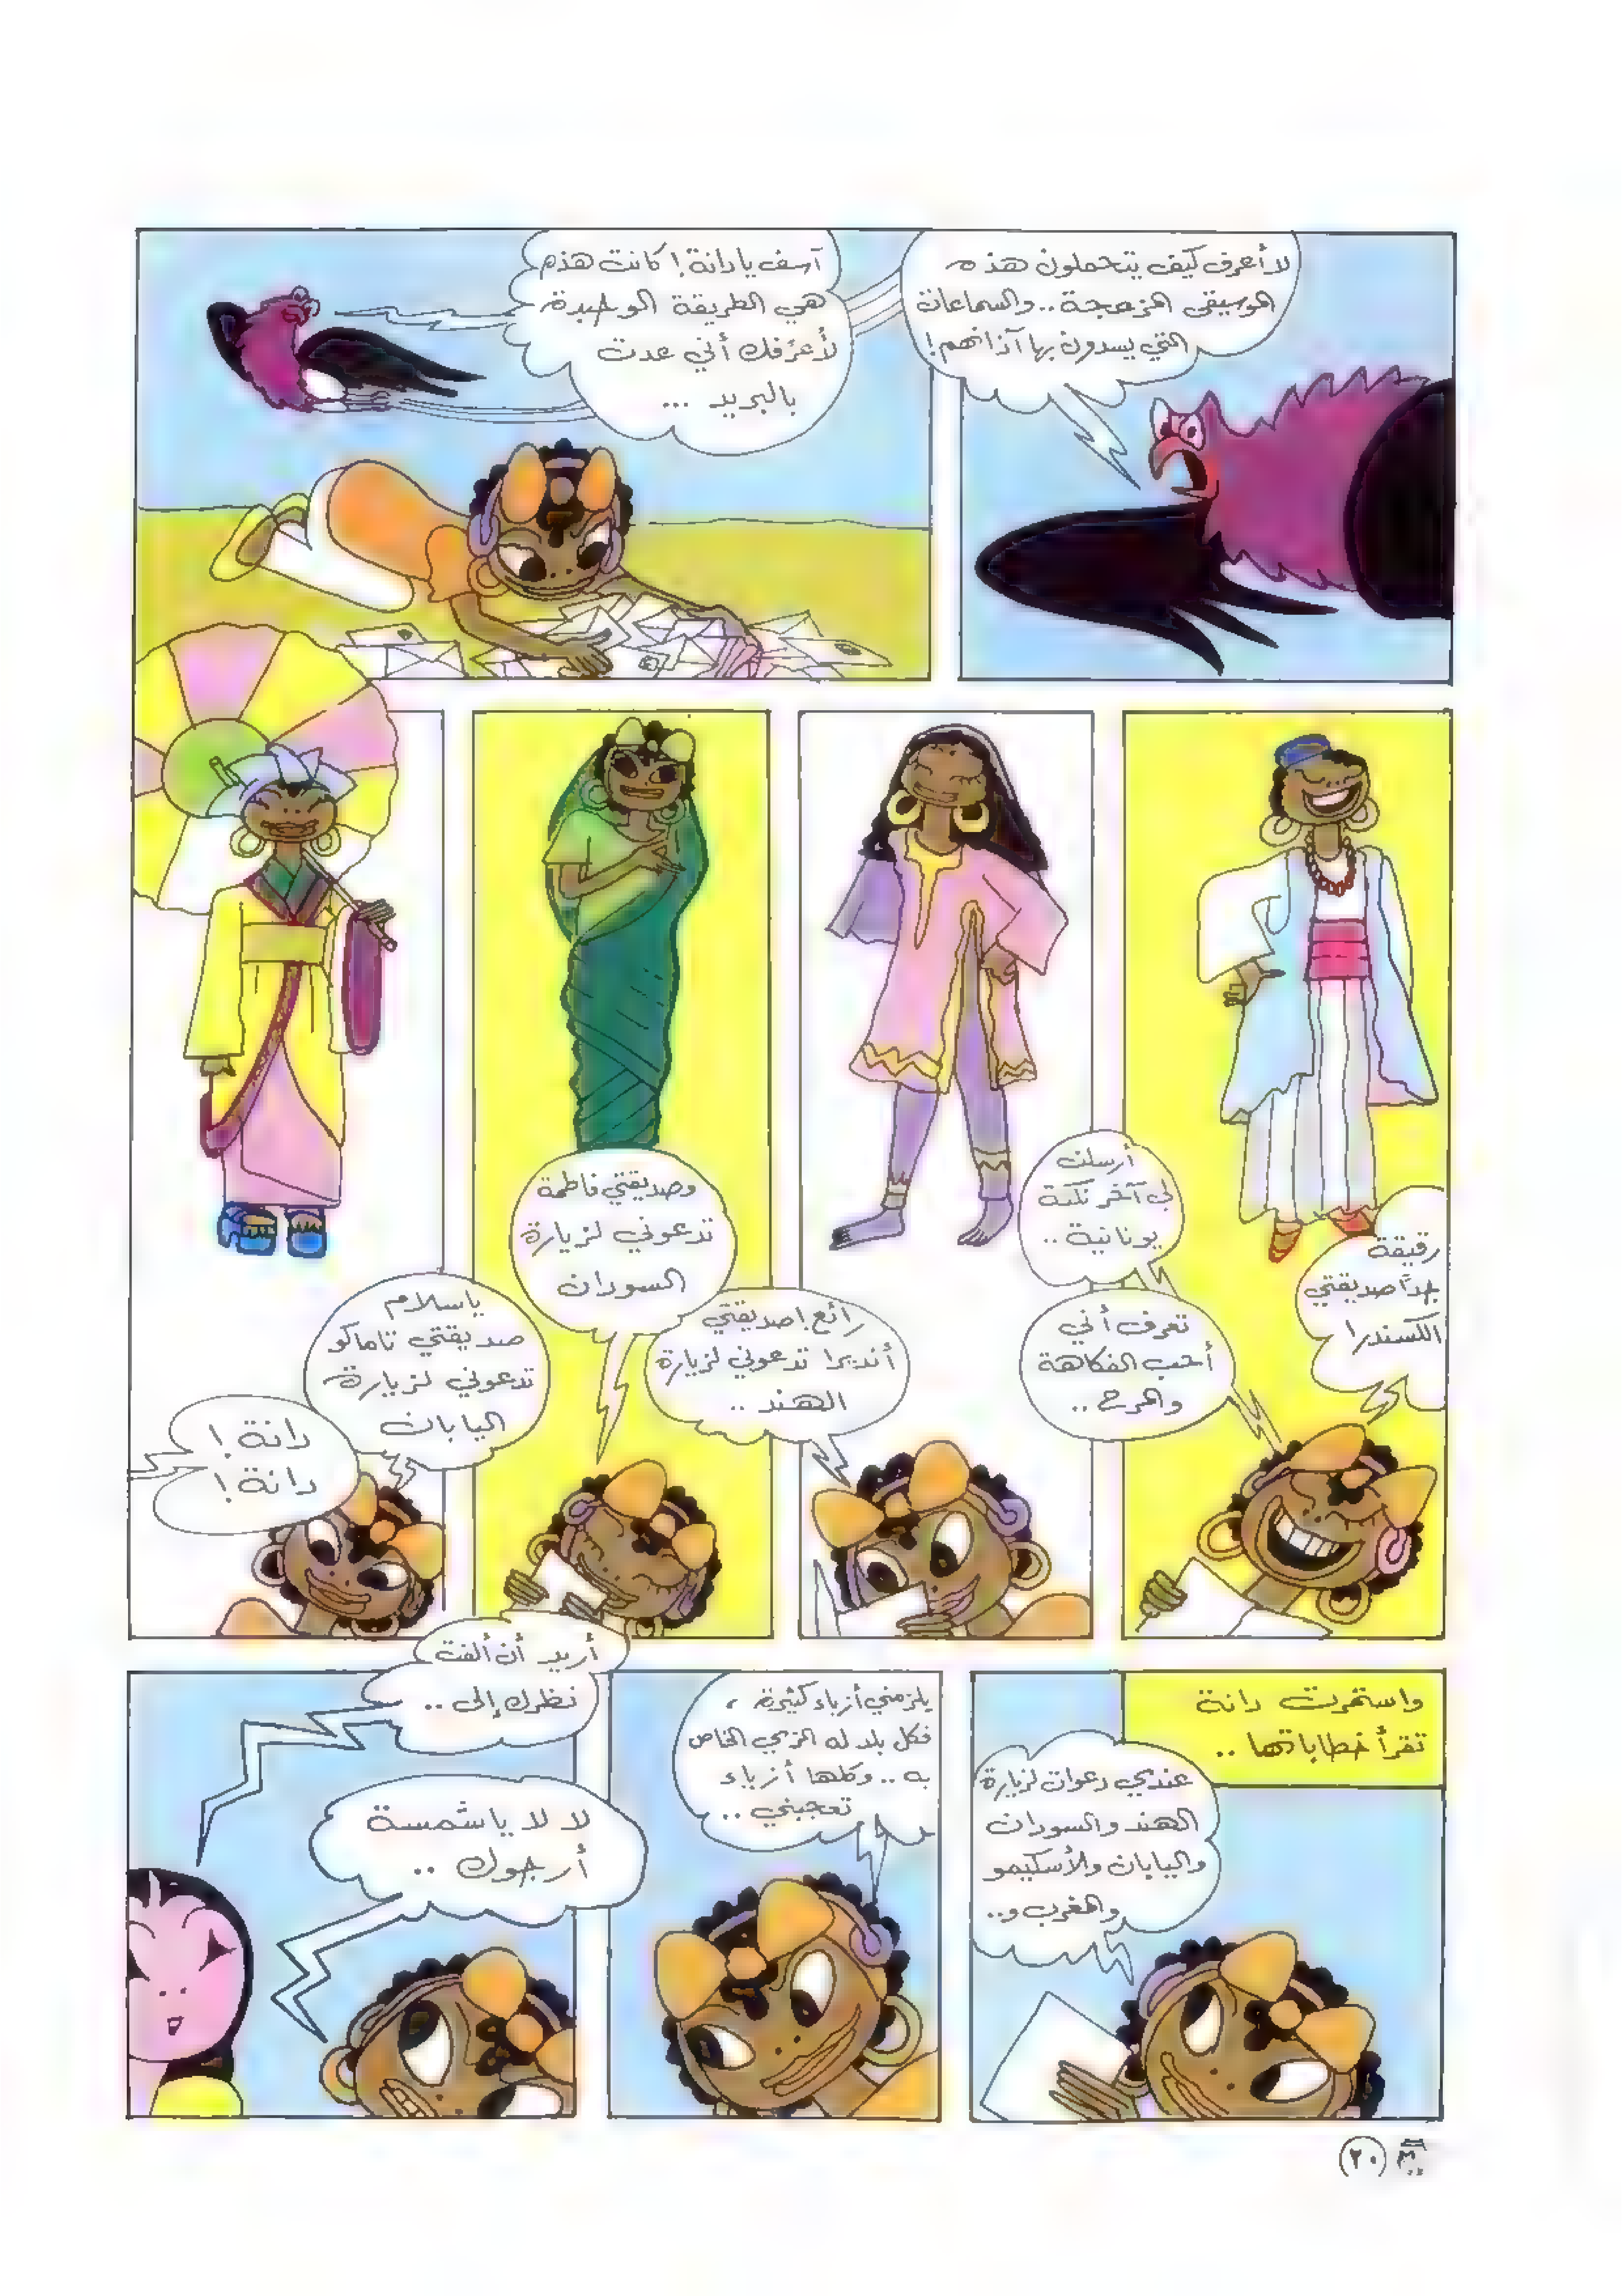 لا أعرف كيف يتحملون هذه
الموسيقى المزعجة .. والسماعات
التي يسدون بها آذانهم!
آسف يا دانة! كانت هذه
هي الطريقة الوحيدة
لأعرّفك أني عدت
بالبريد ...
رقيقة
جدًا صديقتي
الكسندرا
تعرف أني
أحب الفكاهة
والمرح ..
أرسلت
لي آخر نكتة
يونانية ..
رائع! صديقتي
أنديرا تدعوني لزيارة
الهند ..
وصديقتي فاطمة
تدعوني لزيارة
السودان
ياسلام
صديقتي تاماكو
تدعوني لزيارة
اليابان
دانة!
دانة!
واستمرت دانة
تقرأ خطاباتها ..
عندي دعوات لزيارة
الهند والسودان
واليابان والأسكيمو
والمغرب و..
يلزمني أزياء كثيرة ،
فكل بلد له الزي الخاص
به .. وكلها أزياء
تعجبني ..
أريد أن ألفت
نظرك إلى ..
لا لا ياشمسة
أرجوك ..
٢٠